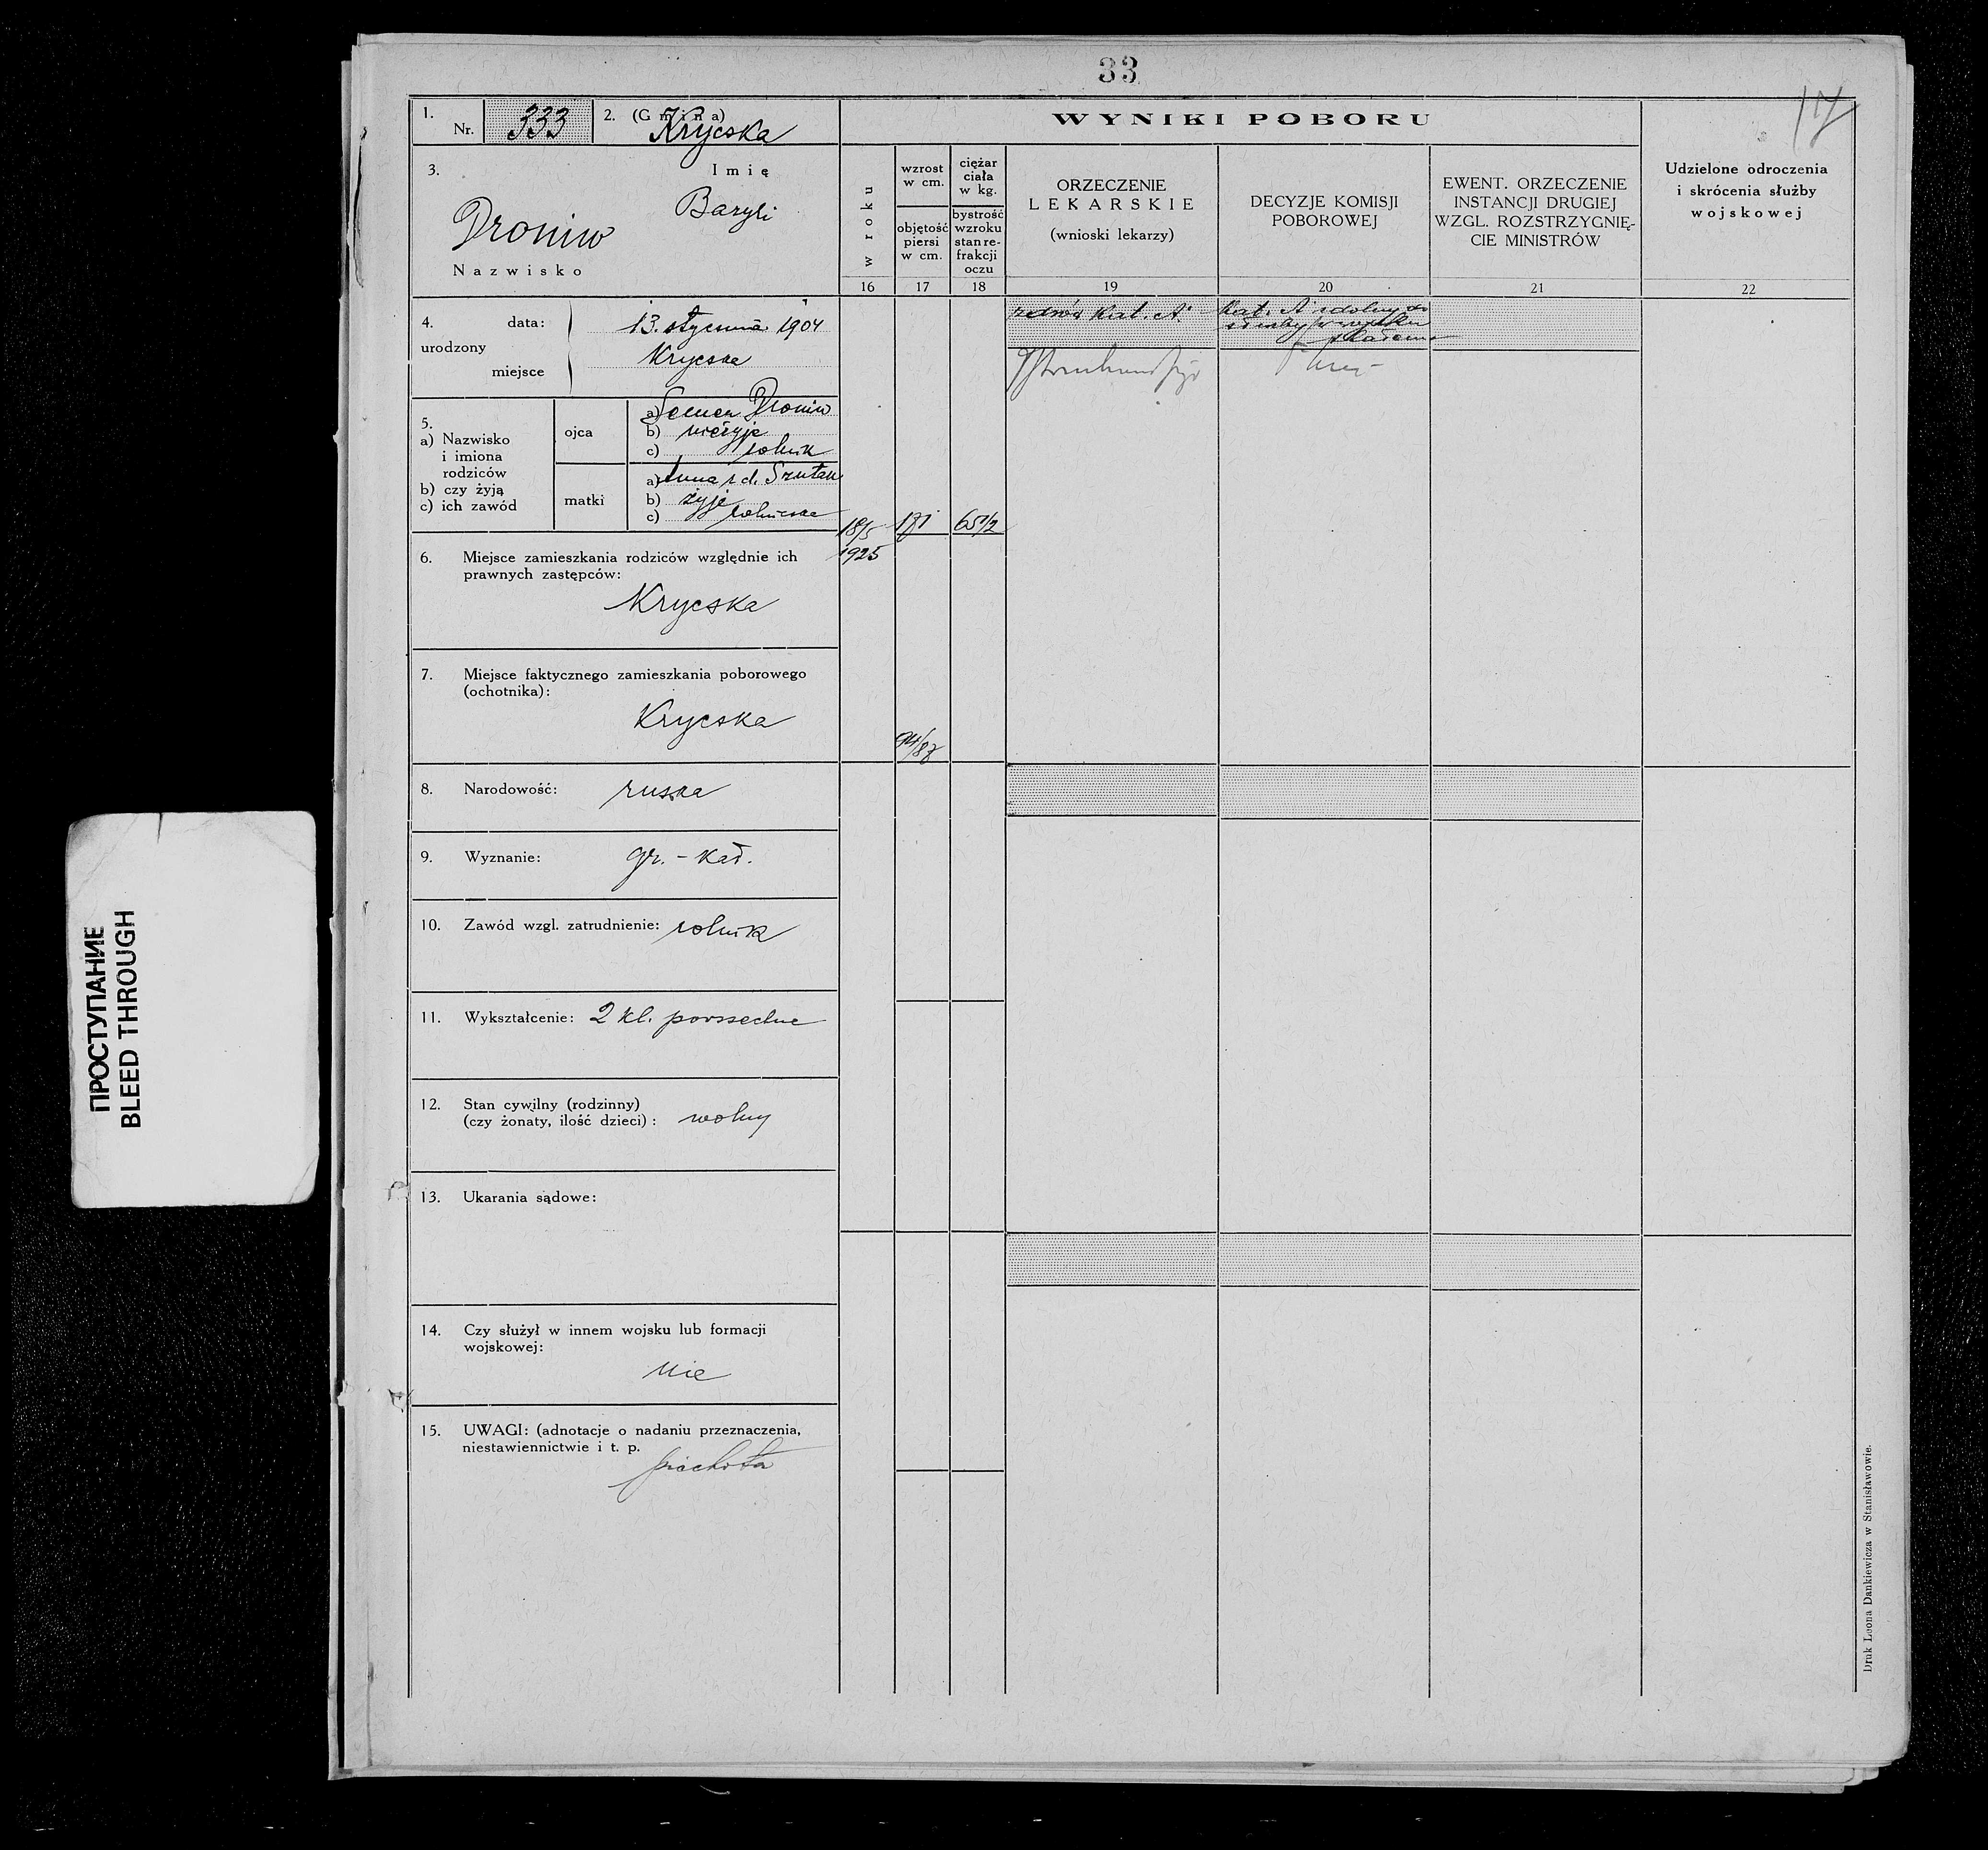 33
17
1. Nr. 333 2. (Gmina) Krycska
WYNIKI POBORU
3. Imię
Bazyli
Droniw
Nazwisko
w roku
wzrost w cm.
objętość piersi w cm.
ciężar ciała w kg.
bystrość wzroku stan re-frakcji oczu
ORZECZENIE LEKARSKIE
(wnioski lekarzy)
DECYZJE KOMISJI POBOROWEJ
EWENT. ORZECZENIE INSTANCJI DRUGIEJ WZGL. ROZSTRZYGNIĘ-CIE MINISTRÓW
Udzielone odroczenia i skrócenia służby wojskowej
16 17 18 19 20 21 22
4. urodzony
data: 13. stycznia 1904
miejsce Krycska
zdrów Kat. A
Kat. A zdolny do
służby w wojsku
stałem
5.
a) Nazwisko i imiona rodziców
b) czy żyją
c) ich zawód
ojca
a) Semen Droniw
b) nieżyje
c) rolnik
matki
a) Anna z d. Szutak
b) żyje
c) rolniczka
18/5 1925
171
65 1/2
6. Miejsce zamieszkania rodziców względnie ich
prawnych zastępców:
Krycska
7. Miejsce faktycznego zamieszkania poborowego
(ochotnika):
Krycska
94/87
8. Narodowość: ruska
9. Wyznanie: gr.-kat.
10. Zawód wzgl. zatrudnienie: rolnik
11. Wykształcenie: 2 kl. powszechne
12. Stan cywilny (rodzinny)
(czy żonaty, ilość dzieci): wolny
13. Ukarania sądowe:
14. Czy służył w innem wojsku lub formacji
wojskowej:
nie
15. UWAGI: (adnotacje o nadaniu przeznaczenia,
niestawiennictwie i t. p.
piechota
Druk Leona Dankiewicza w Stanisławowie.
ПРОСТУПАНИЕ
BLEED THROUGH